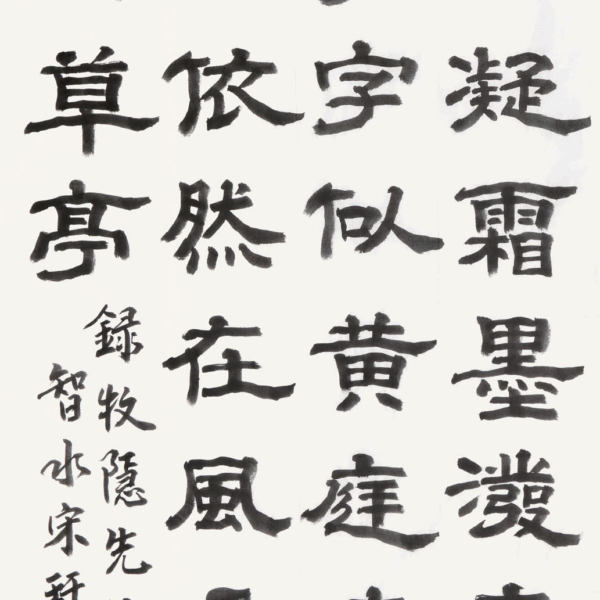 凝霜墨潑
字似黃庭
依然在風
草亭
録牧隱先
智水宋